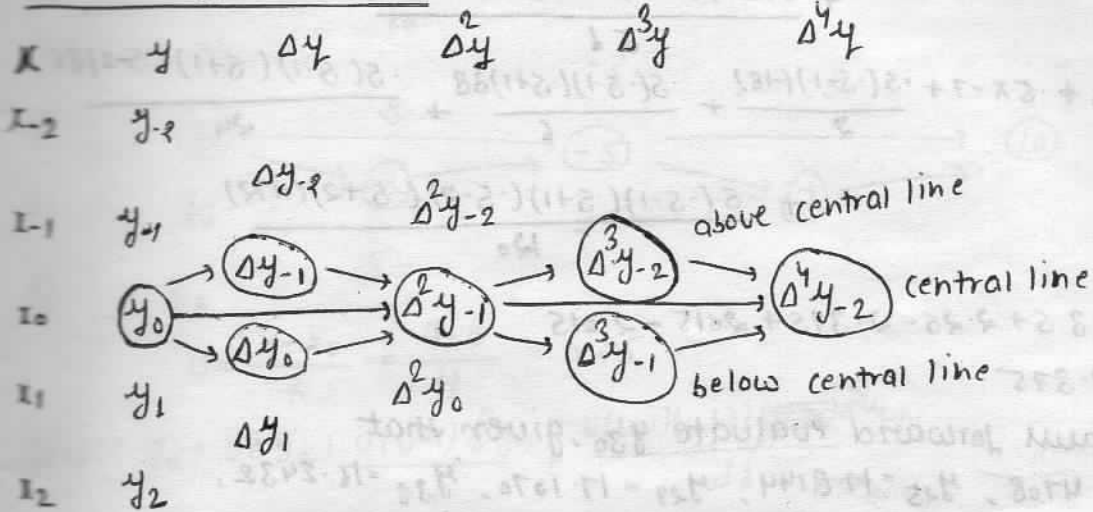 x y Δy Δ²y Δ³y Δ⁴y
x-2 y-2
Δy-2
x-1 y-1 Δ²y-2
Δy-1 Δ³y-2 above central line
x0 y0 Δ²y-1 Δ⁴y-2 central line
Δy0 Δ³y-1
x1 y1 Δ²y0 below central line
Δy1
x2 y2